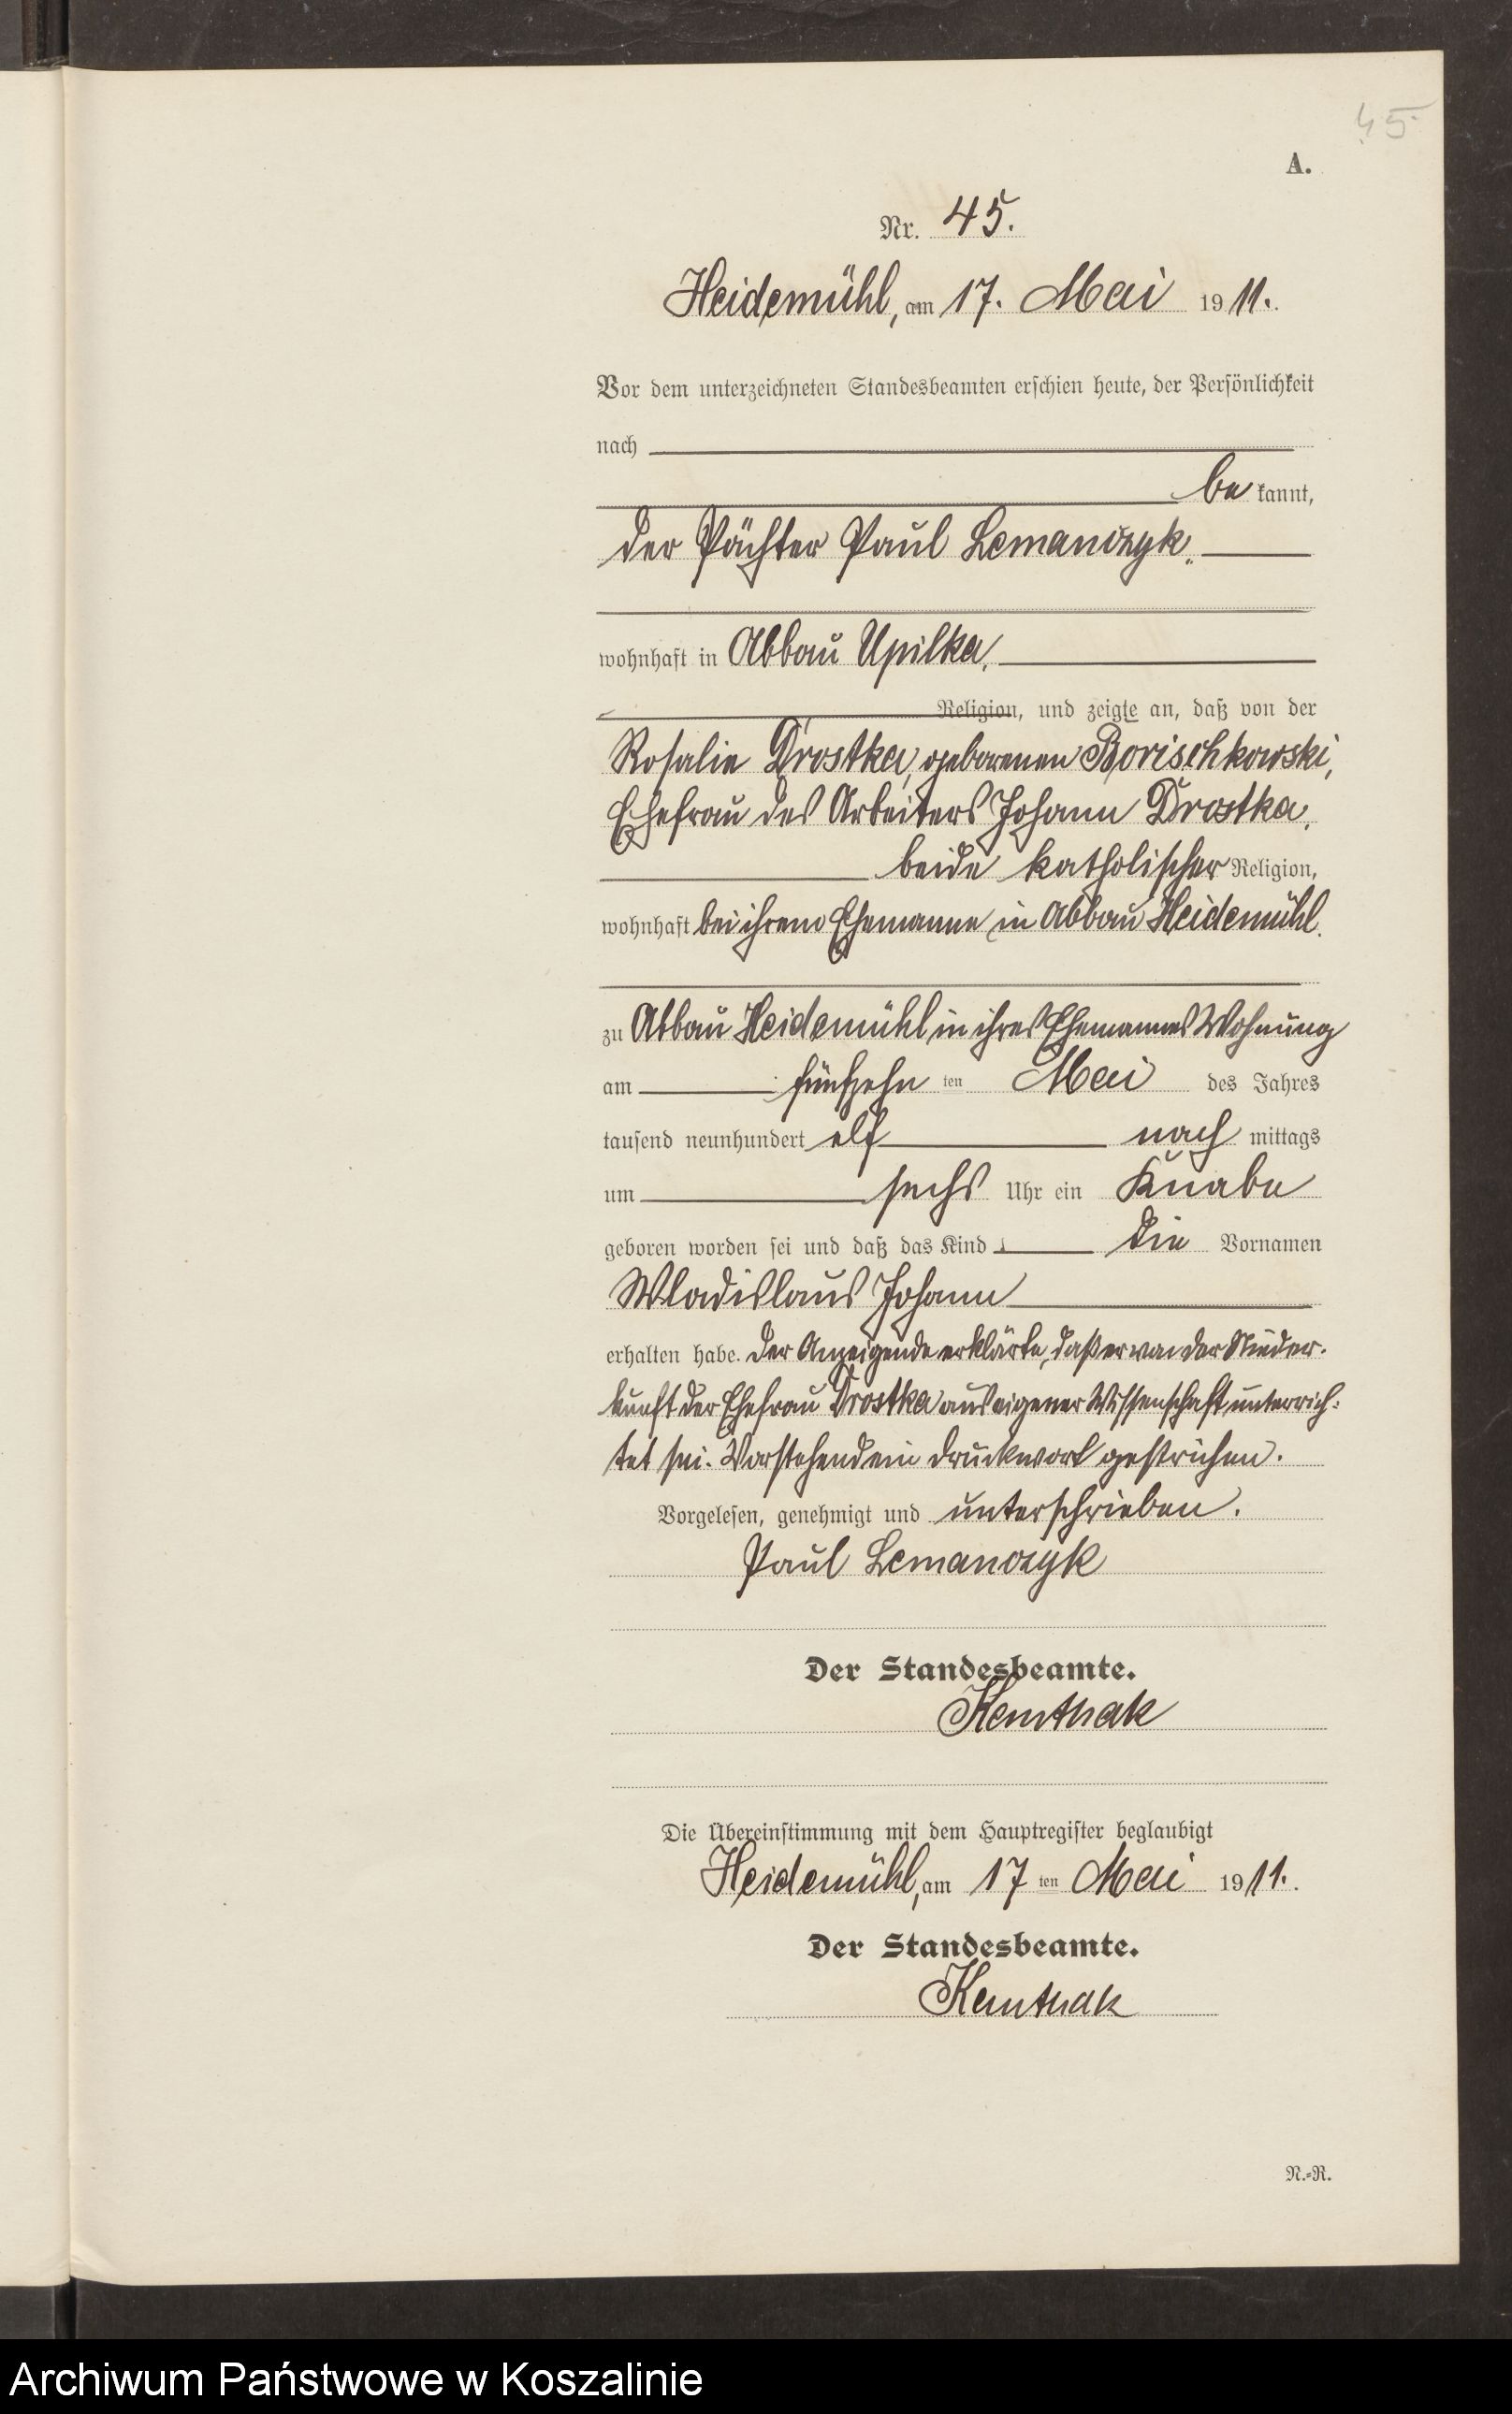 45
A.
Nr. 45.
Heidemühl, am 17. Mai 1911.
Vor dem unterzeichneten Standesbeamten erschien heute, der Persönlichkeit
nach
be kannt,
der Pächter Paul Lemanczyk.
wohnhaft in Abbau Upilka.
Religion, und zeigte an, daß von der
Rosalie Drostka, geborenen Borischkowski,
Ehefrau des Arbeiters Johann Drostka,
beide katholischer Religion,
wohnhaft bei ihrem Ehemanne in Abbau Heidemühl.
zu Abbau Heidemühl in ihres Ehemannes Wohnung
am fünfzehn ten Mai des Jahres
tausend neunhundert elf nach mittags
um sechs Uhr ein Knabe
geboren worden sei und daß das Kind die Vornamen
Wladislaus Johann
erhalten habe. Der Anzeigende erklärte, daß er von der Nieder-
kunft der Ehefrau Drostka aus eigener Wissenschaft unterrich-
tet sei. Vorstehend ein Druckwort gestrichen.
Vorgelesen, genehmigt und unterschrieben.
Paul Lemanczyk
Der Standesbeamte.
Die Übereinstimmung mit dem Hauptregister beglaubigt
Heidemühl, am 17 ten Mai 1911.
Der Standesbeamte.
N.-R.
Archiwum Państwowe w Koszalinie